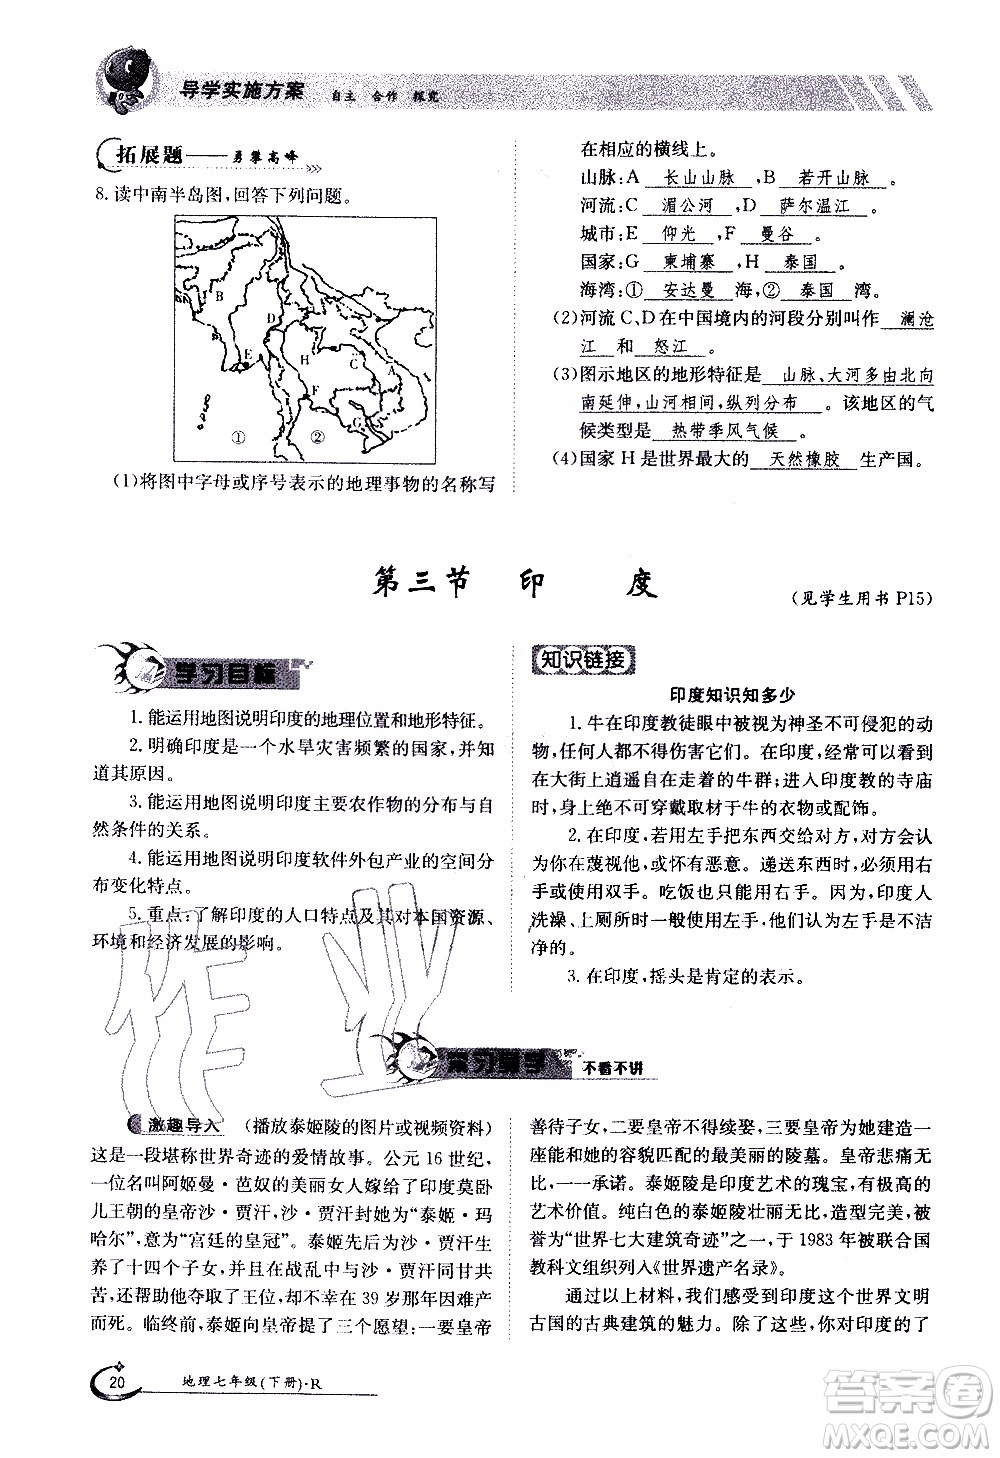 导学实施方案 自主 合作 探究
拓展题——勇攀高峰
8. 读中南半岛图,回答下列问题。
B
D
E
H
C
A
F
G
①
②
(1)将图中字母或序号表示的地理事物的名称写
在相应的横线上。
山脉:A 长山山脉 ,B 若开山脉 。
河流:C 湄公河 ,D 萨尔温江 。
城市:E 仰光 ,F 曼谷 。
国家:G 柬埔寨 ,H 泰国 。
海湾:① 安达曼 海,② 泰国 湾。
(2)河流 C、D 在中国境内的河段分别叫作 澜沧
江 和 怒江 。
(3)图示地区的地形特征是 山脉、大河多由北向
南延伸,山河相间,纵列分布 。该地区的气
候类型是 热带季风气候 。
(4)国家 H 是世界最大的 天然橡胶 生产国。
第三节 印 度
(见学生用书 P15)
学习目标
1. 能运用地图说明印度的地理位置和地形特征。
2. 明确印度是一个水旱灾害频繁的国家,并知
道其原因。
3. 能运用地图说明印度主要农作物的分布与自
然条件的关系。
4. 能运用地图说明印度软件外包产业的空间分
布变化特点。
5. 重点:了解印度的人口特点及其对本国资源、
环境和经济发展的影响。
知识链接
印度知识知多少
1. 牛在印度教徒眼中被视为神圣不可侵犯的动
物,任何人都不得伤害它们。在印度,经常可以看到
在大街上逍遥自在走着的牛群;进入印度教的寺庙
时,身上绝不可穿戴取材于牛的衣物或配饰。
2. 在印度,若用左手把东西交给对方,对方会认
为你在蔑视他,或怀有恶意。递送东西时,必须用右
手或使用双手。吃饭也只用右手。因为,印度人
洗澡、上厕所时一般使用左手,他们认为左手是不洁
净的。
3. 在印度,摇头是肯定的表示。
不看不讲
激趣导入 (播放泰姬陵的图片或视频资料)
这是一段堪称世界奇迹的爱情故事。公元 16 世纪,
一位名叫阿姬曼·芭奴的美丽女人嫁给了印度莫卧
儿王朝的皇帝沙·贾汗,沙·贾汗封她为“泰姬·玛
哈尔”,意为“宫廷的皇冠”。泰姬先后为沙·贾汗生
养了十四个子女,并在战乱中与沙·贾汗同甘共
苦,还帮助他夺取了王位,却在 39 岁那年因难产
而死。临终前,泰姬向皇帝提了三个愿望:一要皇帝
善待子女,二要皇帝不得续娶,三要皇帝为她建造一
座能和她的容貌匹配的最美丽的陵墓。皇帝悲痛无
比,一一承诺。泰姬陵是印度艺术的瑰宝,有极高的
艺术价值。纯白色的泰姬陵壮丽无比,造型完美,被
誉为“世界七大建筑奇迹”之一,于 1983 年被联合国
教科文组织列入《世界遗产名录》。
通过以上材料,我们感受到印度这个世界文明
古国的古典建筑的魅力。除了这些,你对印度的了
20 地理七年级(下册)·R
作业
答案圈
MXQE.COM